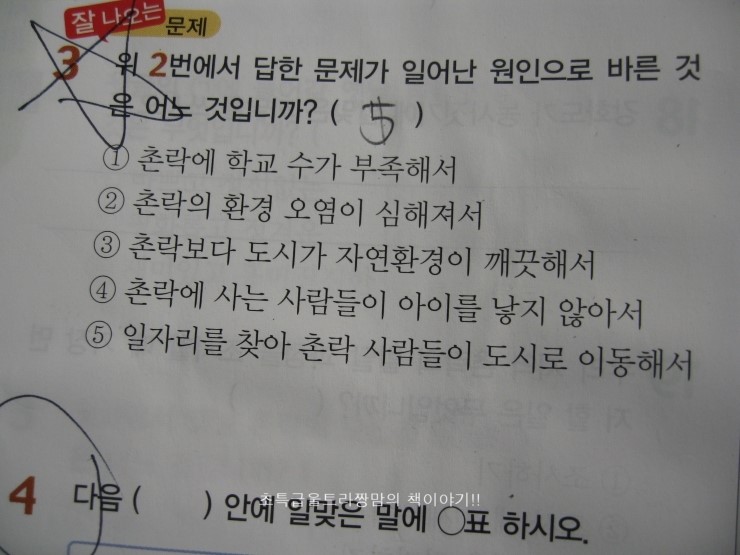 잘 나오는 문제
3 위 2번에서 답한 문제가 일어난 원인으로 바른 것
은 어느 것입니까? ( 5 )
① 촌락에 학교 수가 부족해서
② 촌락의 환경 오염이 심해져서
③ 촌락보다 도시가 자연환경이 깨끗해서
④ 촌락에 사는 사람들이 아이를 낳지 않아서
⑤ 일자리를 찾아 촌락 사람들이 도시로 이동해서
4 다음 ( ) 안에 알맞은 말에 ○표 하시오.
초특급울트라짱맘의 책이야기!!